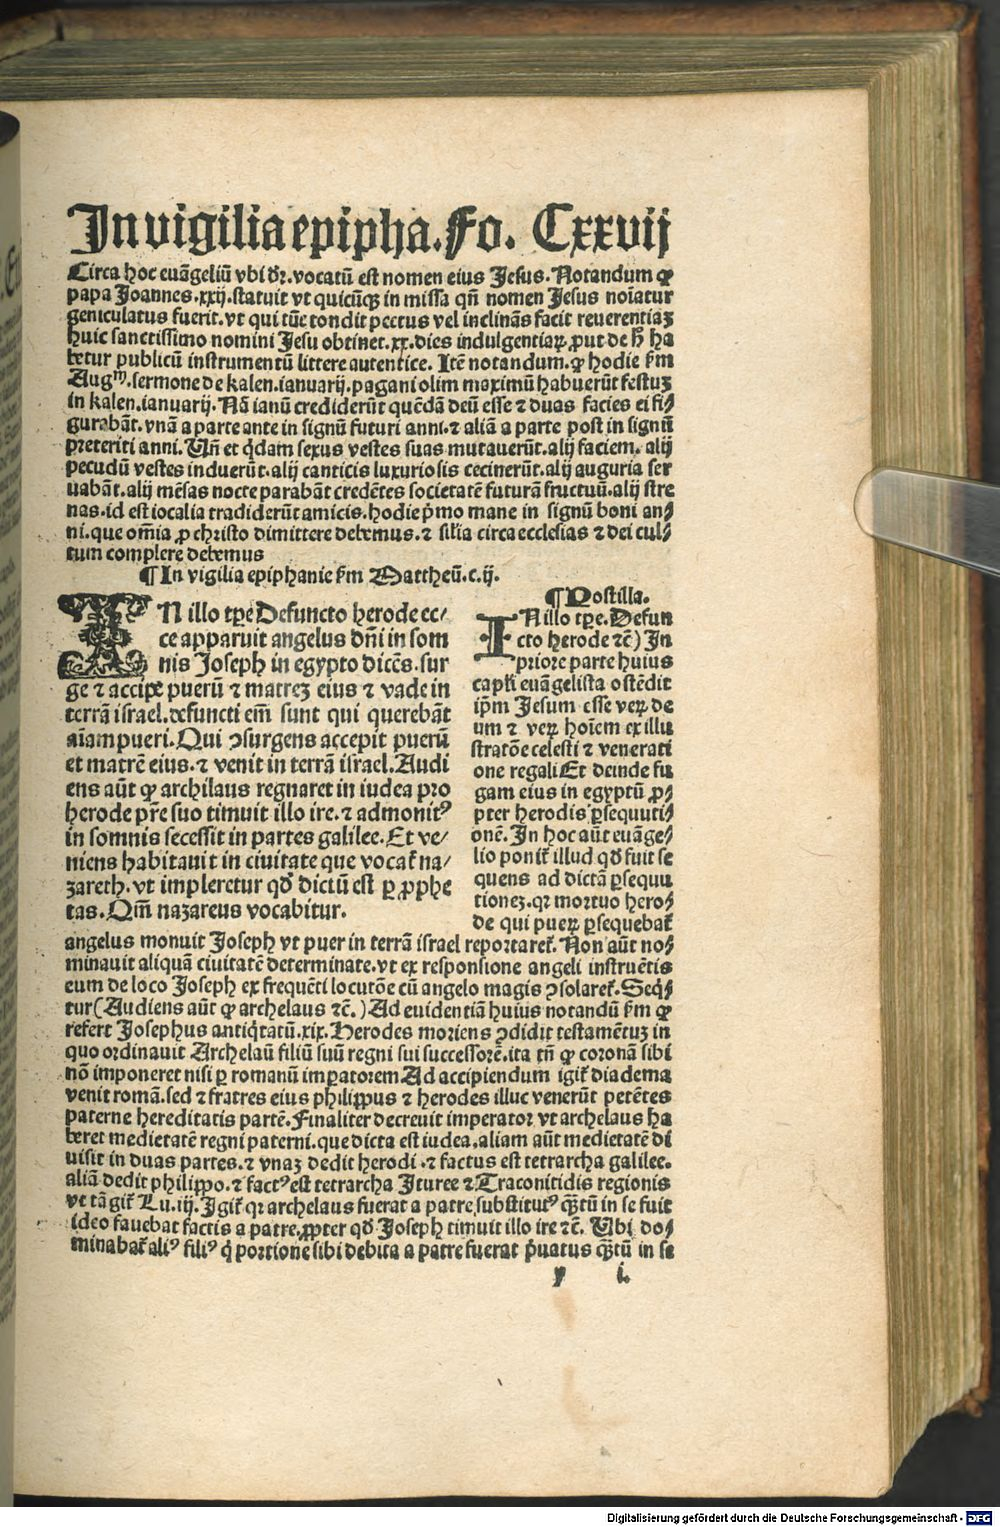 In vigilia epipha. Fo. Cxxvij
Circa hoc euãgeliũ vbi dr̃. vocatũ est nomen eius Jesus. Notandum ꝙ
papa Joannes .xxij. statuit vt quicũqꝫ in missa qñ nomen Jesus noĩatur
geniculatus fuerit. vt qui tũc tondit pectus vel inclinãs facit reuerentiaꝫ
huic sanctissimo nomini Jesu obtinet .xx. dies indulgentiaꝝ. ꝓut de h̃ ha
betur publicũ instrumentũ littere autentice. Itẽ notandum. ꝙ hodie ẜm
Augᵐ. sermone de kalen. ianuarij. pagani olim maximũ habuerũt festuꝫ
in kalen. ianuarij. Nã ianũ crediderũt quẽdã deũ esse ⁊ duas facies ei fi⸗
gurabãt. vnã a parte ante in signũ futuri anni. ⁊ aliã a parte post in signũ
preteriti anni. Uñ et q̇dam sexus vestes suas mutauerũt. alij faciem. alij
pecudũ vestes induerũt. alij canticis luxuriosis cecinerũt. alij auguria ser
uabãt. alij mẽsas nocte parabãt credẽtes societatẽ futurã fructuũ. alij stre
nas. id est iocalia tradiderũt amicis. hodie p̃mo mane in signũ boni an⸗
ni. que om̃ia ꝓ christo dimittere debemus. ⁊ sil̃ia circa ecclesias ⁊ dei cul⸗
tum complere debemus
¶ In vigilia epiphanie ẜm Mattheũ. c. ij.
IN illo tꝑe Defuncto herode ec⸗
ce apparuit angelus dñi in som
nis Joseph in egypto dicẽs. sur
ge ⁊ accipe puerũ ⁊ matreꝫ eius ⁊ vade in
terrã israel. defuncti em̃ sunt qui querebãt
aĩam pueri. Qui ↄsurgens accepit puerũ
et matrẽ eius. ⁊ venit in terrã israel. Audi
ens aũt ꝙ archilaus regnaret in iudea pro
herode pr̃e suo timuit illo ire. ⁊ admonitꝰ
in somnis secessit in partes galilee. Et ve⸗
niens habitauit in ciuitate que vocat̃ na⸗
zareth. vt impleretur qđ dictũ est ꝑ ꝓphe
tas. Qm̃ nazareus vocabitur.
¶ Postilla.
IN illo tꝑe. Defun
cto herode ⁊c̃) In
priore parte huius
capl̃i euãgelista ostẽdit
ip̃m Jesum esse veꝝ de
um ⁊ veꝝ hoĩem ex illu
stratõe celesti ⁊ venerati
one regali Et deinde fu
gam eius in egyptũ ꝓ⸗
pter herodis ꝑsequuti⸗
onẽ. In hoc aũt euãge⸗
lio ponit̃ illud qđ fuit se
quens ad dictã ꝑsequu
tioneꝫ. qꝛ mortuo hero⸗
de qui pueꝝ ꝑsequebat̃
angelus monuit Joseph vt puer in terrã israel reportaret̃. Non aũt no⸗
minauit aliquã ciuitatẽ determinate. vt ex responsione angeli instruẽtis
eum de loco Joseph ex frequẽti locutõe cũ angelo magis ↄsolaret̃. Seq̇⸗
tur (Audiens aũt ꝙ archelaus ⁊c̃.) Ad euidentiã huius notandũ ẜm ꝙ
refert Josephus antiq̇tatũ .xix. Herodes moriens ↄdidit testamẽtuꝫ in
quo ordinauit Archelaũ filiũ suũ regni sui successorẽ. ita tñ ꝙ coronã sibi
nõ imponeret nisi ꝑ romanũ imꝑatorem Ad accipiendum igit̃ diadema
venit romã. sed ⁊ fratres eius philippus ⁊ herodes illuc venerũt petẽtes
paterne hereditatis partẽ. Finaliter decreuit imperator vt archelaus ha
beret medietatẽ regni paterni. que dicta est iudea. aliam aũt medietatẽ di
uisit in duas partes. ⁊ vnaꝫ dedit herodi. ⁊ factus est tetrarcha galilee.
aliã dedit philippo. ⁊ factꝰ est tetrarcha Ituree ⁊ Traconitidis regionis
vt tãgit̃ Lu. iij. Igit̃ qꝛ archelaus fuerat a patre substitutꝰ q̃ꝫtũ in se fuit
ideo fauebat factis a patre. ꝓpter qđ Joseph timuit illo ire ⁊c̃. Ubi do⸗
minabat̃ aliꝰ filiꝰ q̇ portione sibi debita a patre fuerat p̃uatus q̃ꝫtũ in se
y i.
Digitalisierung gefördert durch die Deutsche Forschungsgemeinschaft - DFG